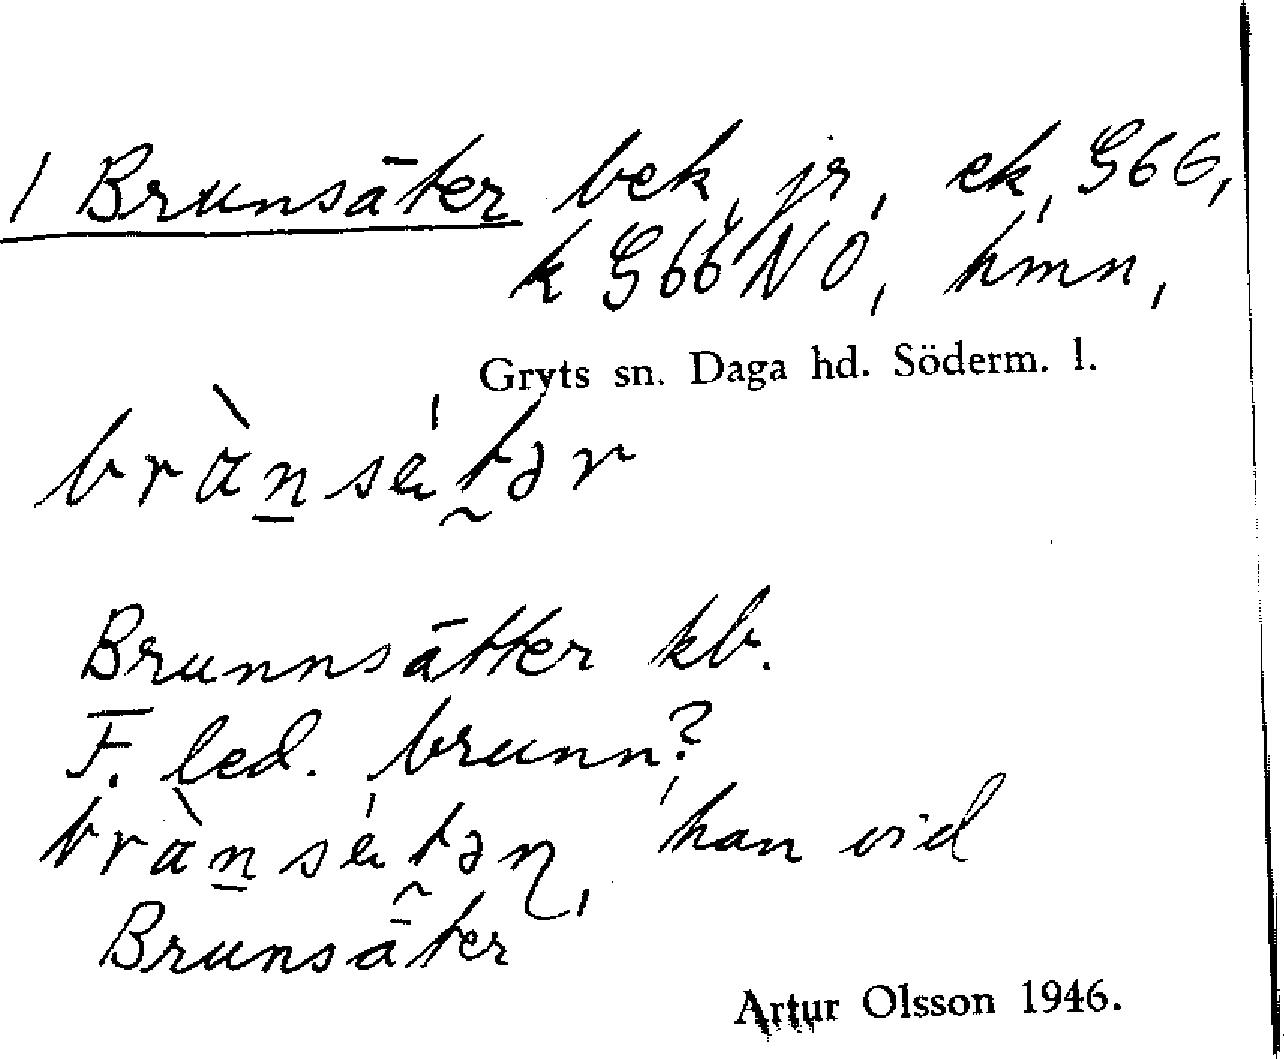 1 Brunsäter bek, jr, ek, G66,
k G66 NO, hmn,
Gryts sn. Daga hd. Söderm. l.
Brunnsätter kb.
F. led. brunn?
han vid
Brunsäter
Artur Olsson 1946.